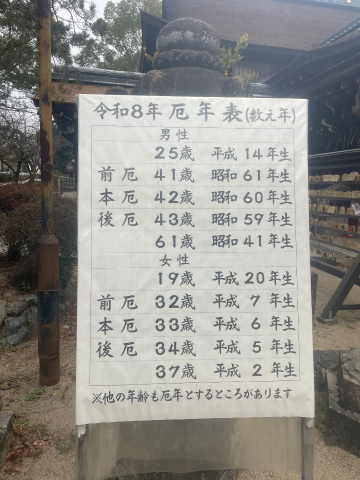 令和8年 厄年表(数え年)
男性
25歳 平成14年生
前厄 41歳 昭和61年生
本厄 42歳 昭和60年生
後厄 43歳 昭和59年生
61歳 昭和41年生
女性
19歳 平成20年生
前厄 32歳 平成7年生
本厄 33歳 平成6年生
後厄 34歳 平成5年生
37歳 平成2年生
※他の年齢も厄年とするところがあります